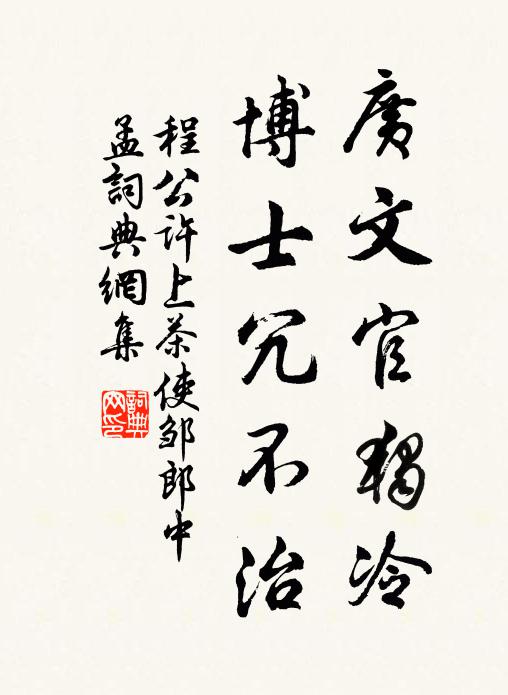 廣文官獨冷
博士冗不治
程公许上茶使邹郎中
孟詞典網集
詞典
网印